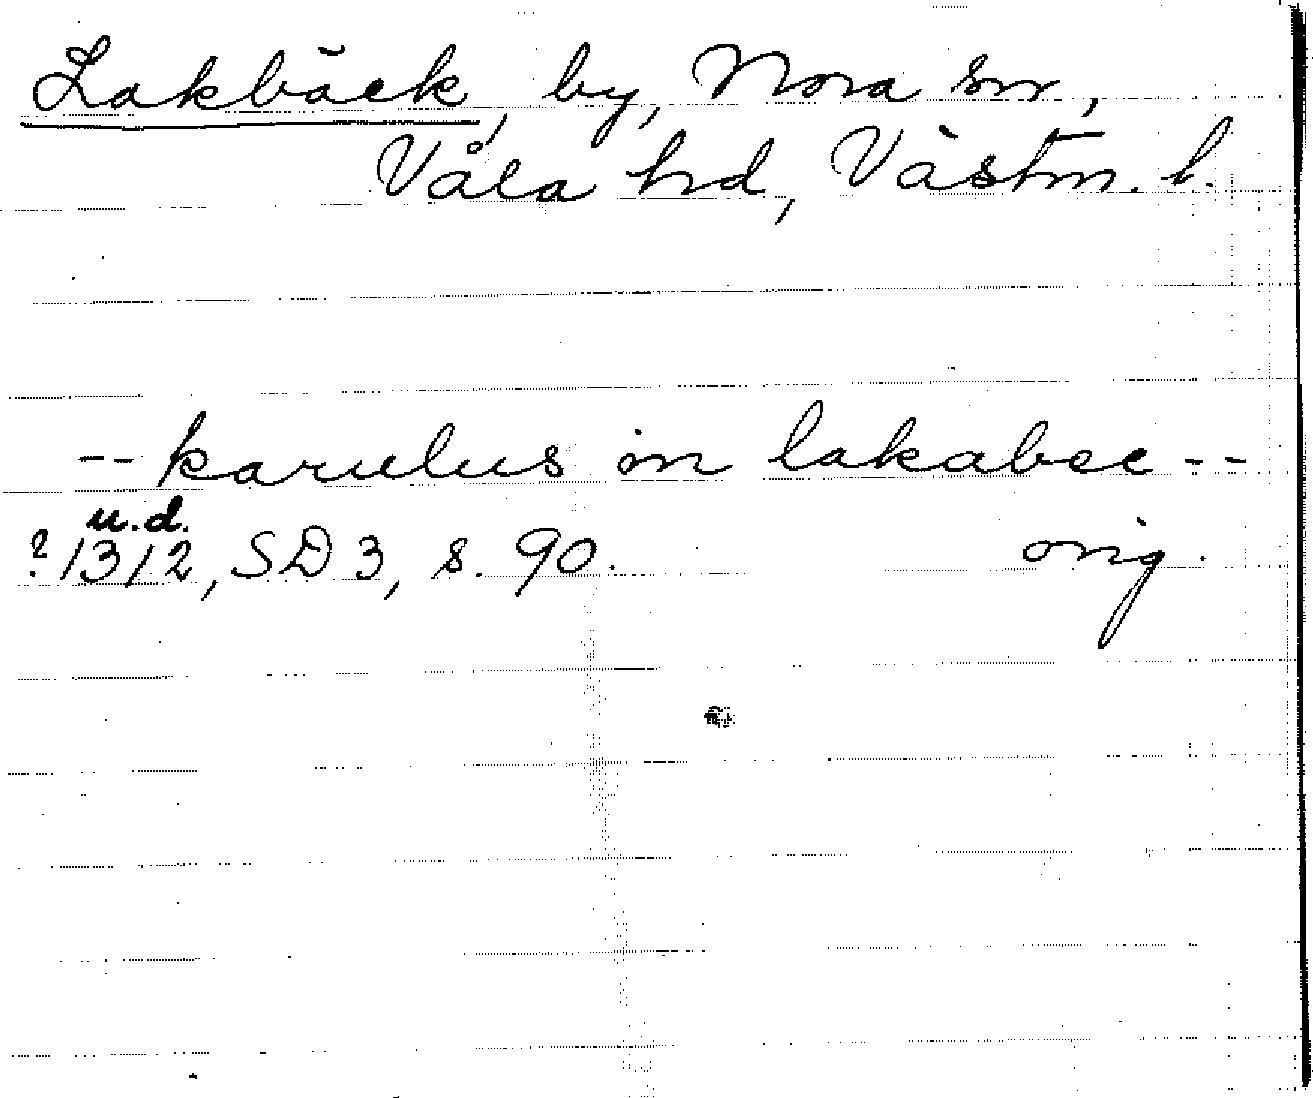 Lakbäck, by, Nora sn,
Våla hd, Västm. l.
-- karulus in lakabec --
u.d.
? 1312, SD 3, s. 90. orig.